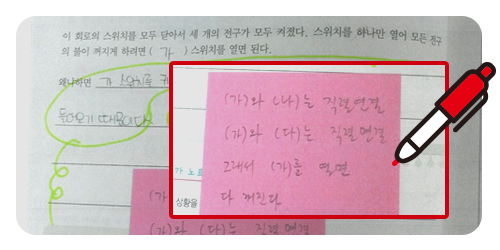 이 회로의 스위치를 모두 닫아서 세 개의 전구가 모두 켜졌다. 스위치를 하나만 열어 모든 전구
의 불이 꺼지게 하려면 ( 가 ) 스위치를 열면 된다.
왜냐하면 가 스위치를
들어오기 때문이다.
(가)와 (나)는 직렬연결
(가)와 (다)는 직렬연결
그래서 (가)를 열면
다 꺼진다
가 노트
상황을
(가)
(가)와 (다)는 직렬 연결